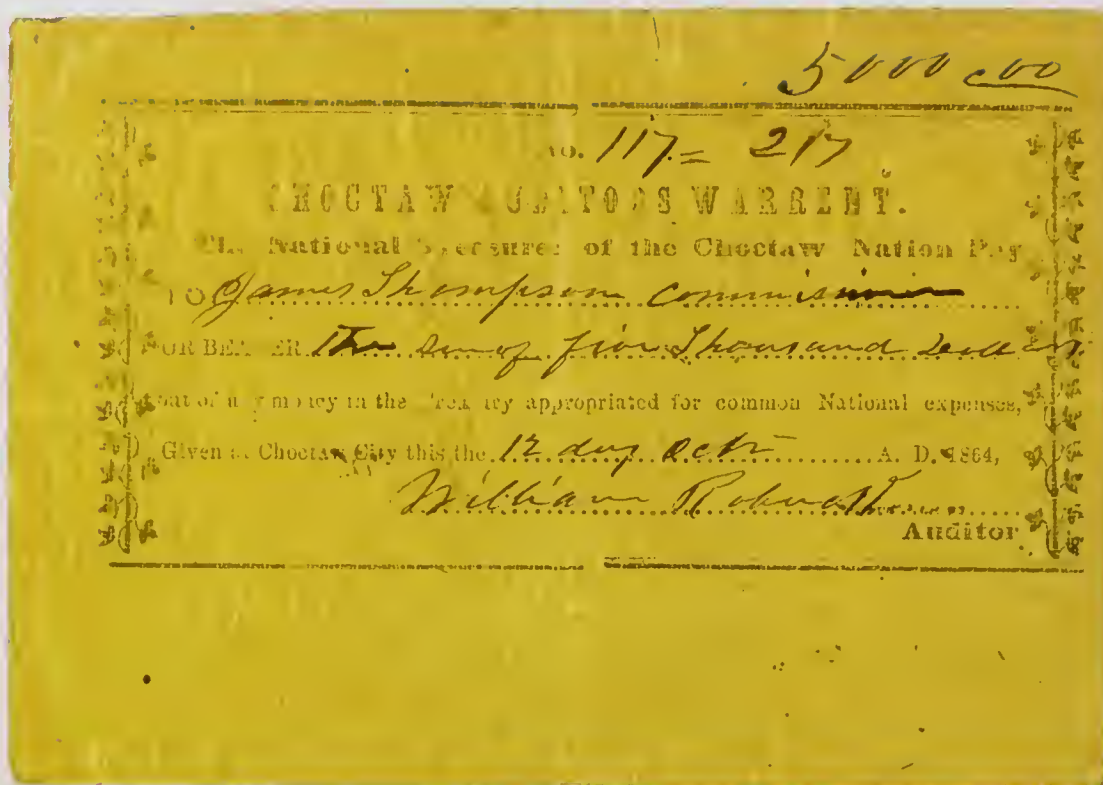 5000 00
No. 117 = 217
CHOCTAW AUDITORS WARRENT.
The National Treasurer of the Choctaw Nation Pay
TO James Thompson Commis
OR BEARER The Sum of five Thousand Dollars
out of any money in the Treasury appropriated for common National expenses,
Given at Choctaw City this the 12 day Oct A. D. 1864,
William
Auditor